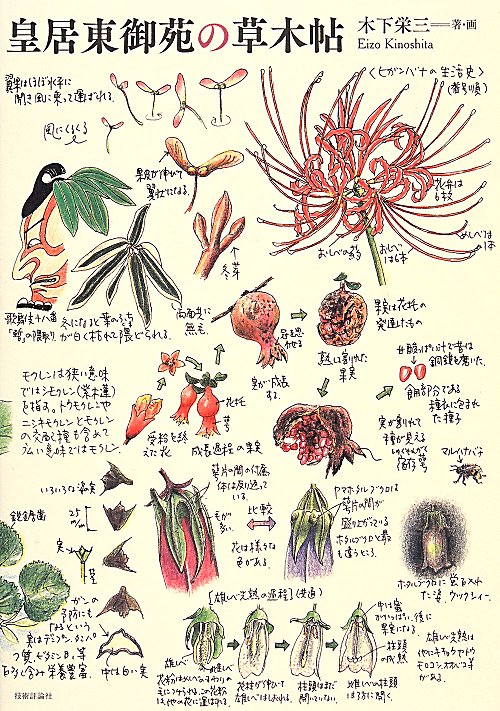 皇居東御苑の草木帖
木下栄三──著・画
Eizo Kinoshita
翼果はほぼ水平に
開き風に乗って運ばれる。
風にくるくる
果皮が伸びて
翼状になる。
↑
冬芽
〈ヒガンバナの生活史〉
(番号順)
花弁は
6枚
めしべは
1本
おしべは6本
おしべの葯
歌舞伎十八番
冬になると葉のふち
が白く枯れて隈どられる。
両面共に
無毛
実が成長
する。
熟し割れた
果実
果実は花托の
発達したもの
甘酸っぱい汁で昔は
銅鏡を磨いた。
食用部分である
種衣に包まれ
た種子
実が割れて
種が見える
マルハナバチ
モクレンは狭い意味
ではシモクレン(紫木蓮)
を指す。トウモクレンや
ニシキモクレンとモクレン
の交配種も含めて
広い意味ではモクレン。
花托
萼
受粉を終
えた花
成長過程の果実
萼片の間の付属
体は反り返って
いる。
毛が
多い
比較
花は様々な
色がある。
ヤマホタルブクロは
萼片の間が
盛り上がっている
ホタルブクロと最
も違うところ。
いろいろな落実
鋭鋸歯
実
茎
中は白い実
栄養豊富。
[雄しべ先熟の過程](共通)
雄しべ
花柱が伸びて
雄しべはしおれる。
柱頭はまだ
開いていない。
雌しべの柱頭
は3方に開く。
中は蜜
後に
果実になる。
柱頭
の成熟
ホタルブクロに蛍を入れ
た姿、ウツクシィー。
雄しべ先熟は
他にキキョウやト
がある。
技術評論社